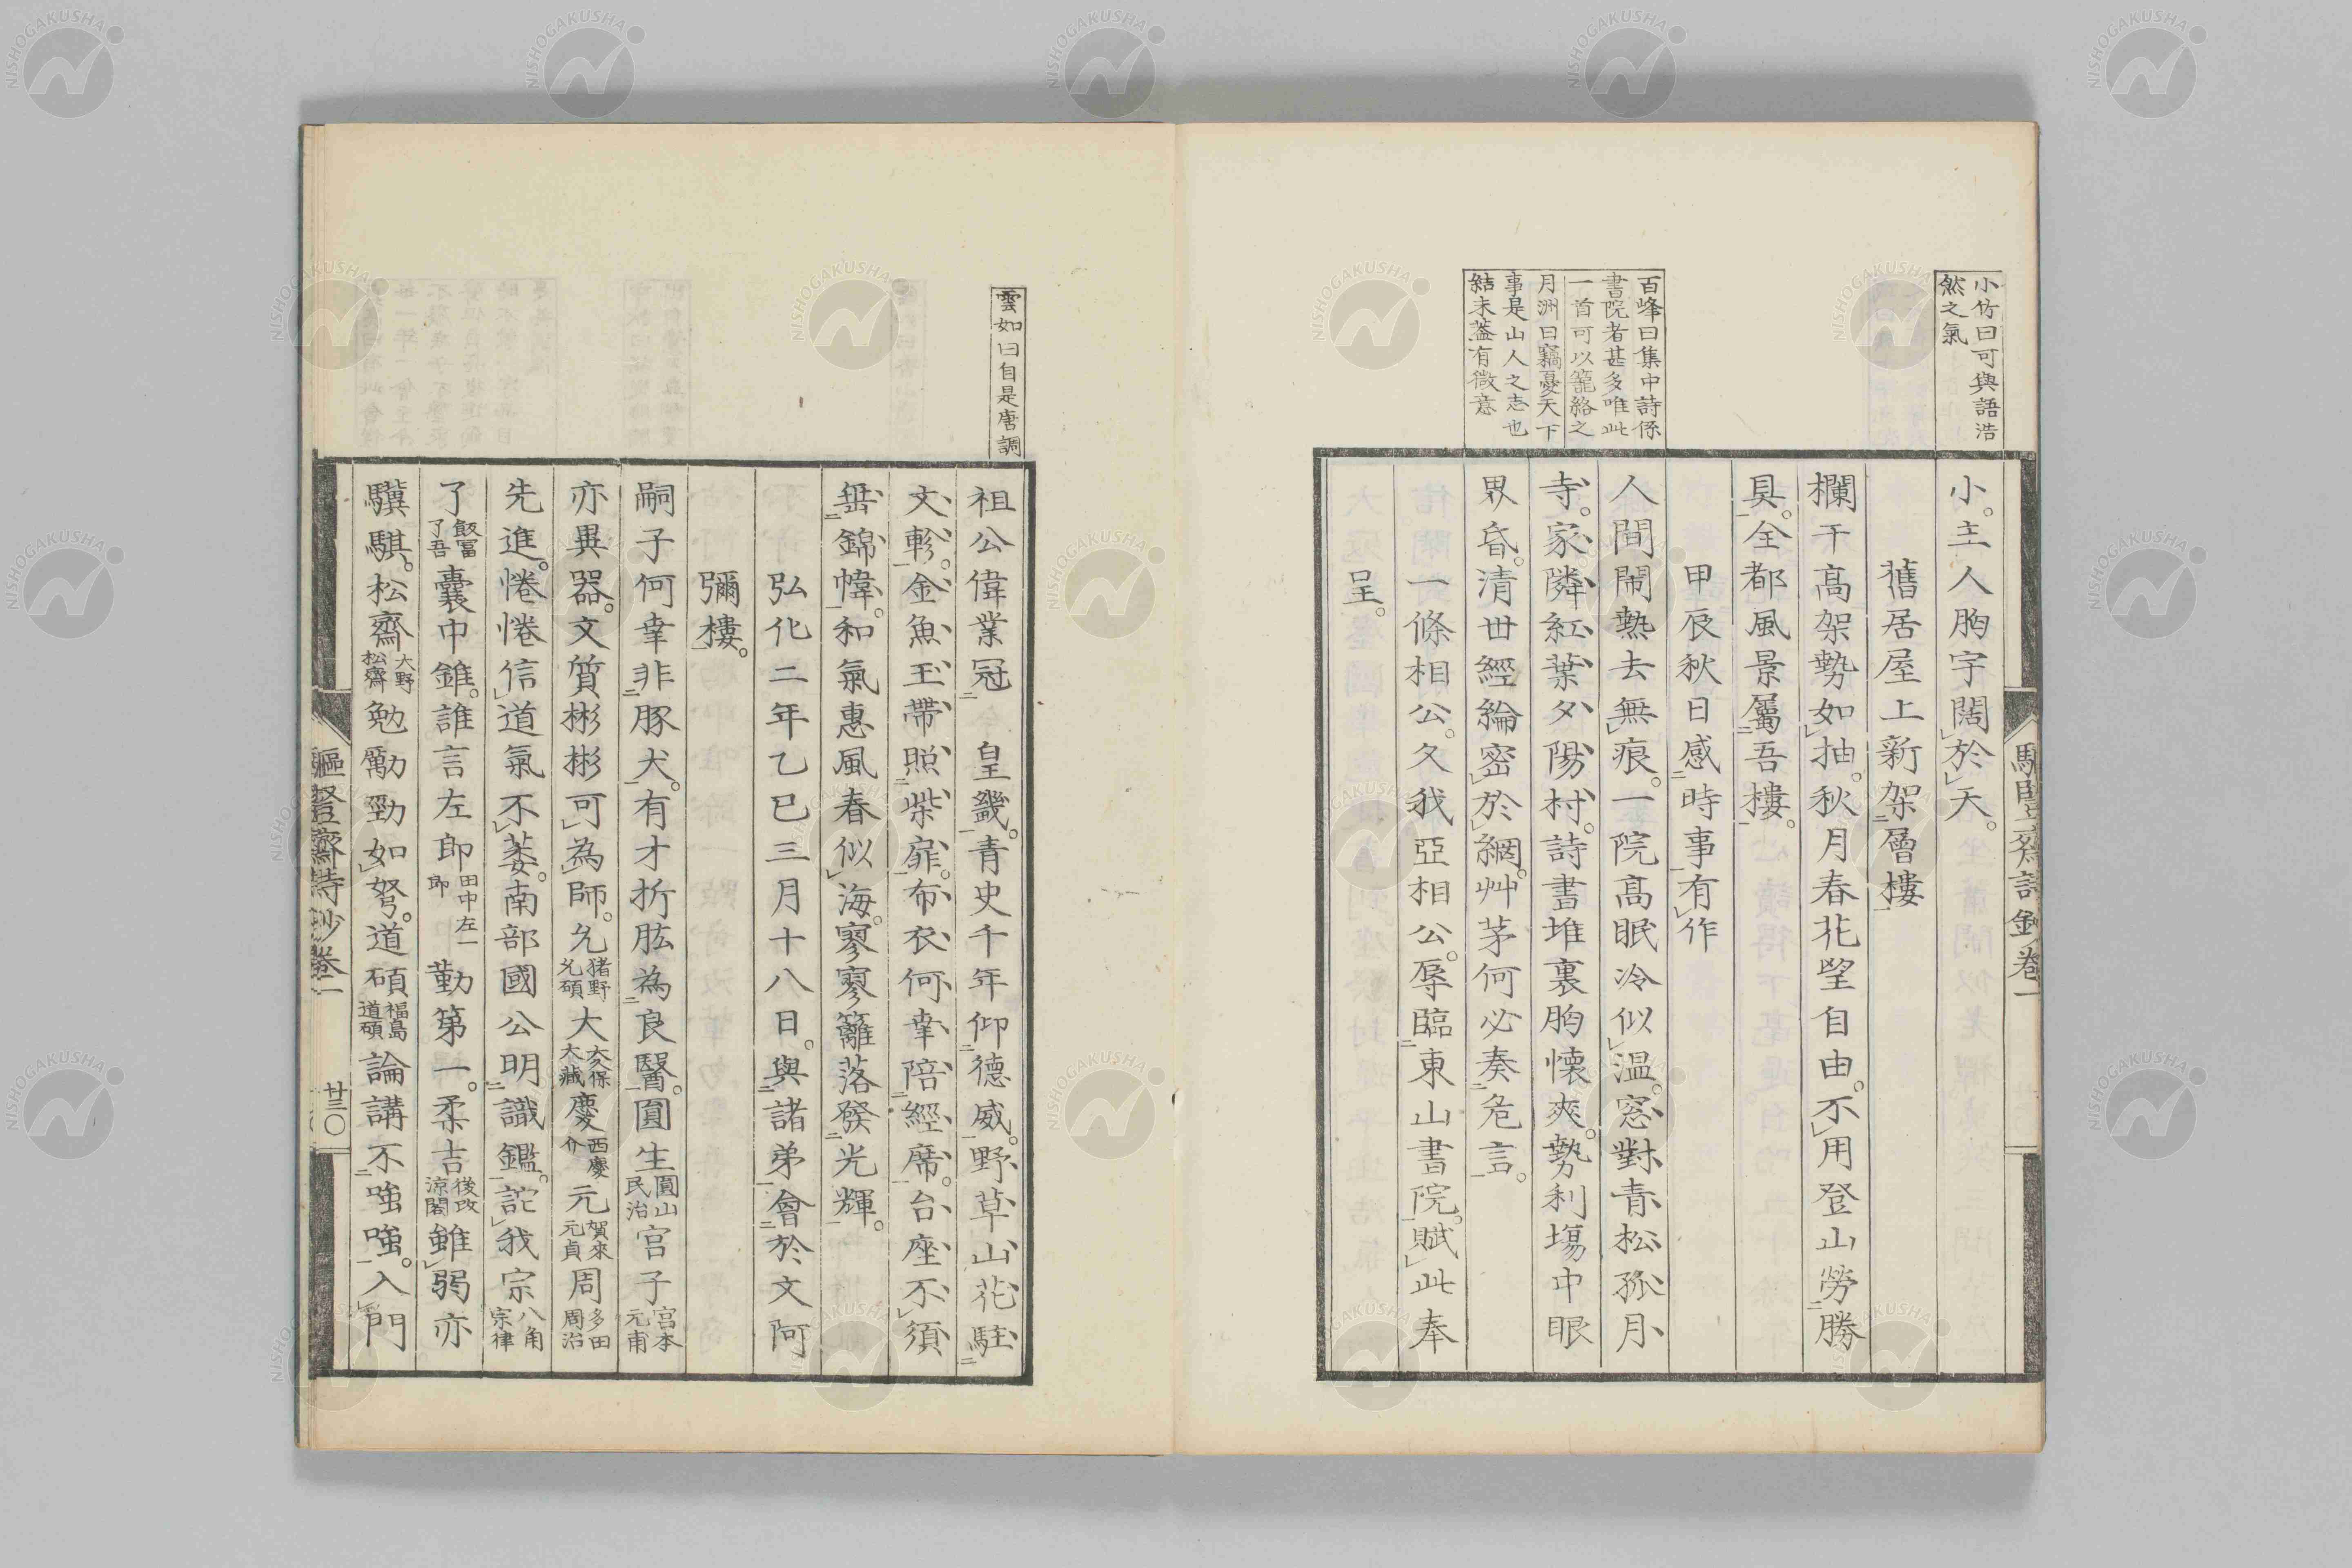 小竹曰可與語浩
然之氣
百峰曰集中詩係
書院者甚多唯此
一首可以籠絡之
月洲曰竊憂天下
事是山人之志也
結末蓋有微意
小。主人胸宇闊於天。
舊居屋上新架層樓
欄干高架勢如抽。秋月春花望自由。不用登山勞勝
具。全都風景屬吾樓。
甲辰秋日感時事有作
人間鬧熱去無痕。一院高眠冷似溫。窓對青松孤月
寺。家隣紅葉夕陽村。詩書堆裏胸懷爽。勢利場中眼
界昏。清世經綸密於網。艸茅何必奏危言。
一條相公。久我亞相公。辱臨東山書院。賦此奉
呈。
驅豎齋詩鈔卷一
雲如曰自是唐調
祖公偉業冠 皇畿。青史千年仰德威。野草山花駐
文軫。金魚玉帶照柴扉。布衣何幸陪經席。台座不須
垂錦幃。和氣惠風春似海。寥寥籬落發光輝。
弘化二年乙巳三月十八日。與諸弟會於文阿
彌樓。
嗣子何幸非豚犬。有才折肱為良醫。圓生圓山民治宮子宮本元甫
亦異器。文質彬彬可為師。允猪野允碩大大久保大藏慶西慶介元賀來元貞周多田周治
先進。惓惓信道氣不萎。南部國公明識鑑。詫我宗八角宗律
了飯冨了吾囊中錐。誰言左卽田中左一郎勤第一。柔吉後改涼閣雖弱亦
驥騏。松齋大野松齋勉勵勁如弩。道碩福島道碩論講不強強。入門
驅豎齋詩鈔卷一
廿三〇
NISHOGAKUSHA